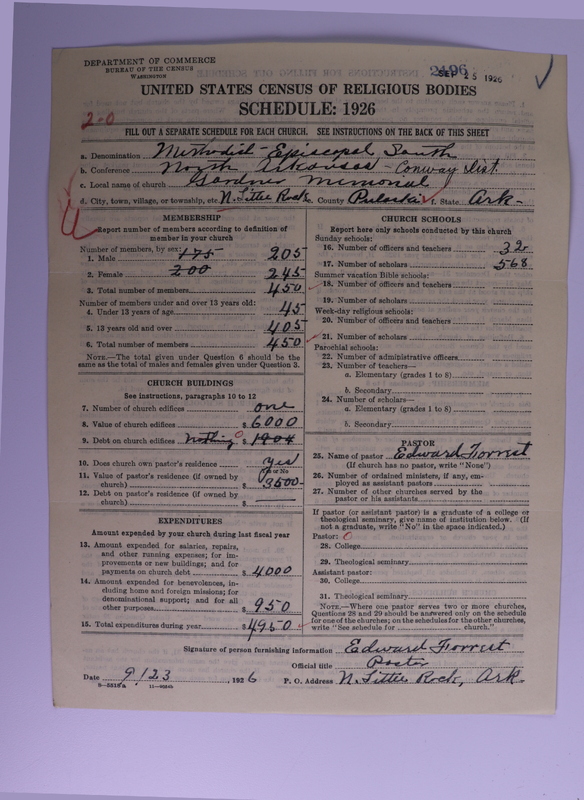 DEPARTMENT OF COMMERCE
BUREAU OF THE CENSUS
WASHINGTON
2496
SEP 25 1926
UNITED STATES CENSUS OF RELIGIOUS BODIES
SCHEDULE: 1926
2-0
FILL OUT A SEPARATE SCHEDULE FOR EACH CHURCH. SEE INSTRUCTIONS ON THE BACK OF THIS SHEET
a. Denomination Methodist-Episcopal, South
b. Conference North Arkansas - Conway Dist.
c. Local name of church Gardner Memorial
d. City, town, village, or township, etc. N. Little Rock e. County Pulaski f. State Ark-
MEMBERSHIP
Report number of members according to definition of member in your church
Number of members, by sex:
1. Male 175 205
2. Female 200 245
3. Total number of members 450
Number of members under and over 13 years old:
4. Under 13 years of age 45
5. 13 years old and over 405
6. Total number of members 450
NOTE.—The total given under Question 6 should be the
same as the total of males and females given under Question 3.
CHURCH BUILDINGS
See instructions, paragraphs 10 to 12
7. Number of church edifices one
8. Value of church edifices $ 6000
9. Debt on church edifices Nothing 0 $ 1904
10. Does church own pastor's residence yes
Yes or No
11. Value of pastor's residence (if owned by
church) $ 3500
12. Debt on pastor's residence (if owned by
church) $
EXPENDITURES
Amount expended by your church during last fiscal year
13. Amount expended for salaries, repairs,
and other running expenses; for im-
provements or new buildings; and for
payments on church debt $ 4000
14. Amount expended for benevolences, in-
cluding home and foreign missions; for
denominational support; and for all
other purposes $ 950
15. Total expenditures during year $ 4950
CHURCH SCHOOLS
Report here only schools conducted by this church
Sunday schools:
16. Number of officers and teachers 32
17. Number of scholars 568
Summer vacation Bible schools:
18. Number of officers and teachers
19. Number of scholars
Week-day religious schools:
20. Number of officers and teachers
21. Number of scholars
Parochial schools:
22. Number of administrative officers
23. Number of teachers—
a. Elementary (grades 1 to 8)
b. Secondary
24. Number of scholars—
a. Elementary (grades 1 to 8)
b. Secondary
PASTOR
25. Name of pastor Edward Forrest
(If church has no pastor, write "None")
26. Number of ordained ministers, if any, em-
ployed as assistant pastors
27. Number of other churches served by the
pastor or his assistants
If pastor (or assistant pastor) is a graduate of a college or
theological seminary, give name of institution below. (If
not a graduate, write "No" in the space indicated.)
Pastor: 0
28. College
29. Theological seminary
Assistant pastor:
30. College
31. Theological seminary
NOTE.—Where one pastor serves two or more churches,
Questions 28 and 29 should be answered only on the schedule
for one of the churches; on the schedules for the other churches,
write "See schedule for church."
Signature of person furnishing information Edward Forrest
Official title Pastor
Date 9/23, 1926 P. O. Address N. Little Rock, Ark.